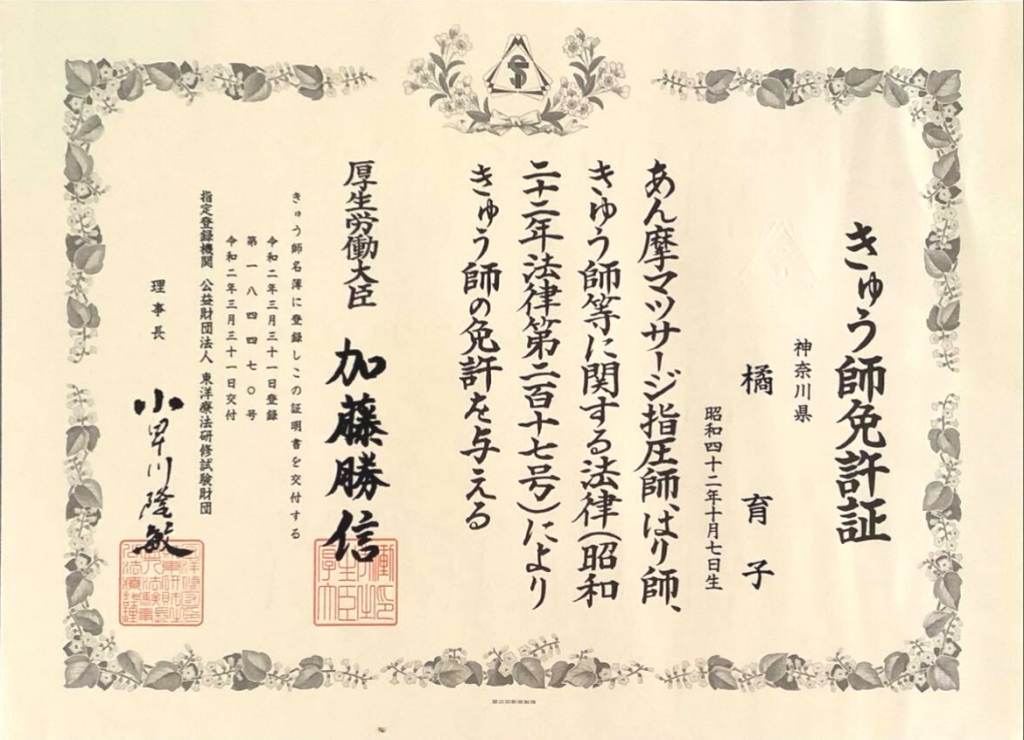 きゅう師免許証
神奈川県
橘 育子
昭和四十二年十月七日生
あん摩マツサージ指圧師、はり師、
きゆう師等に関する法律(昭和
二十二年法律第二百十七号)により
きゅう師の免許を与える
厚生労働大臣 加藤勝信
きゅう師名簿に登録しこの証明書を交付する
令和二年三月三十一日登録
第一八四四七〇号
令和二年三月三十一日交付
指定登録機関 公益財団法人 東洋療法研修試験財団
理事長 小川隆敏